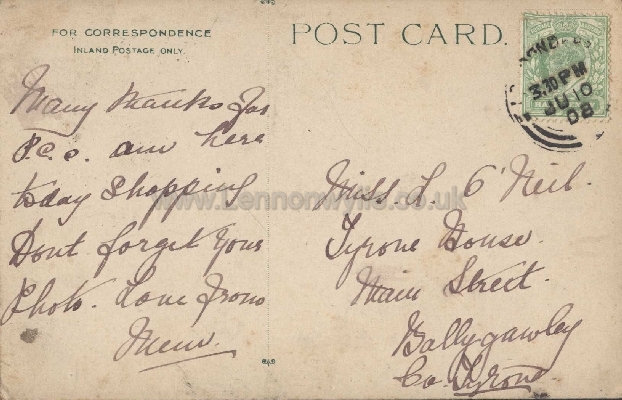 FOR CORRESPONDENCE
INLAND POSTAGE ONLY.
Many thanks for
P.c.s. am here
today shopping
Dont forget your
Photo. Love from
POST CARD.
3.30 PM
JU 10
08
Miss. L. O'Neil.
Tyrone House.
Main Street.
Ballygawley
Co. Tyrone.
www.Lennonwylie.co.uk